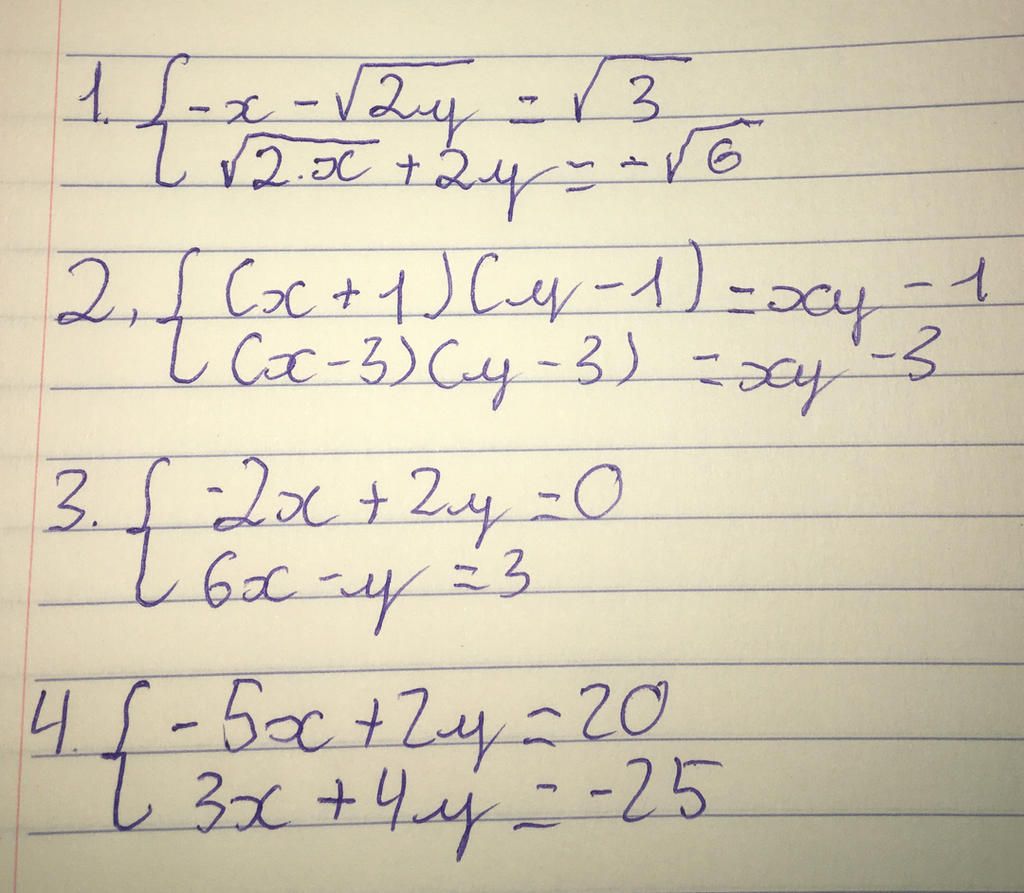 1. { -x - √2y = √3
√2·x + 2y = -√6
2, { (x + 1)(y - 1) = xy - 1
(x - 3)(y - 3) = xy - 3
3. { -2x + 2y = 0
6x - y = 3
4. { -5x + 2y = 20
3x + 4y = -25